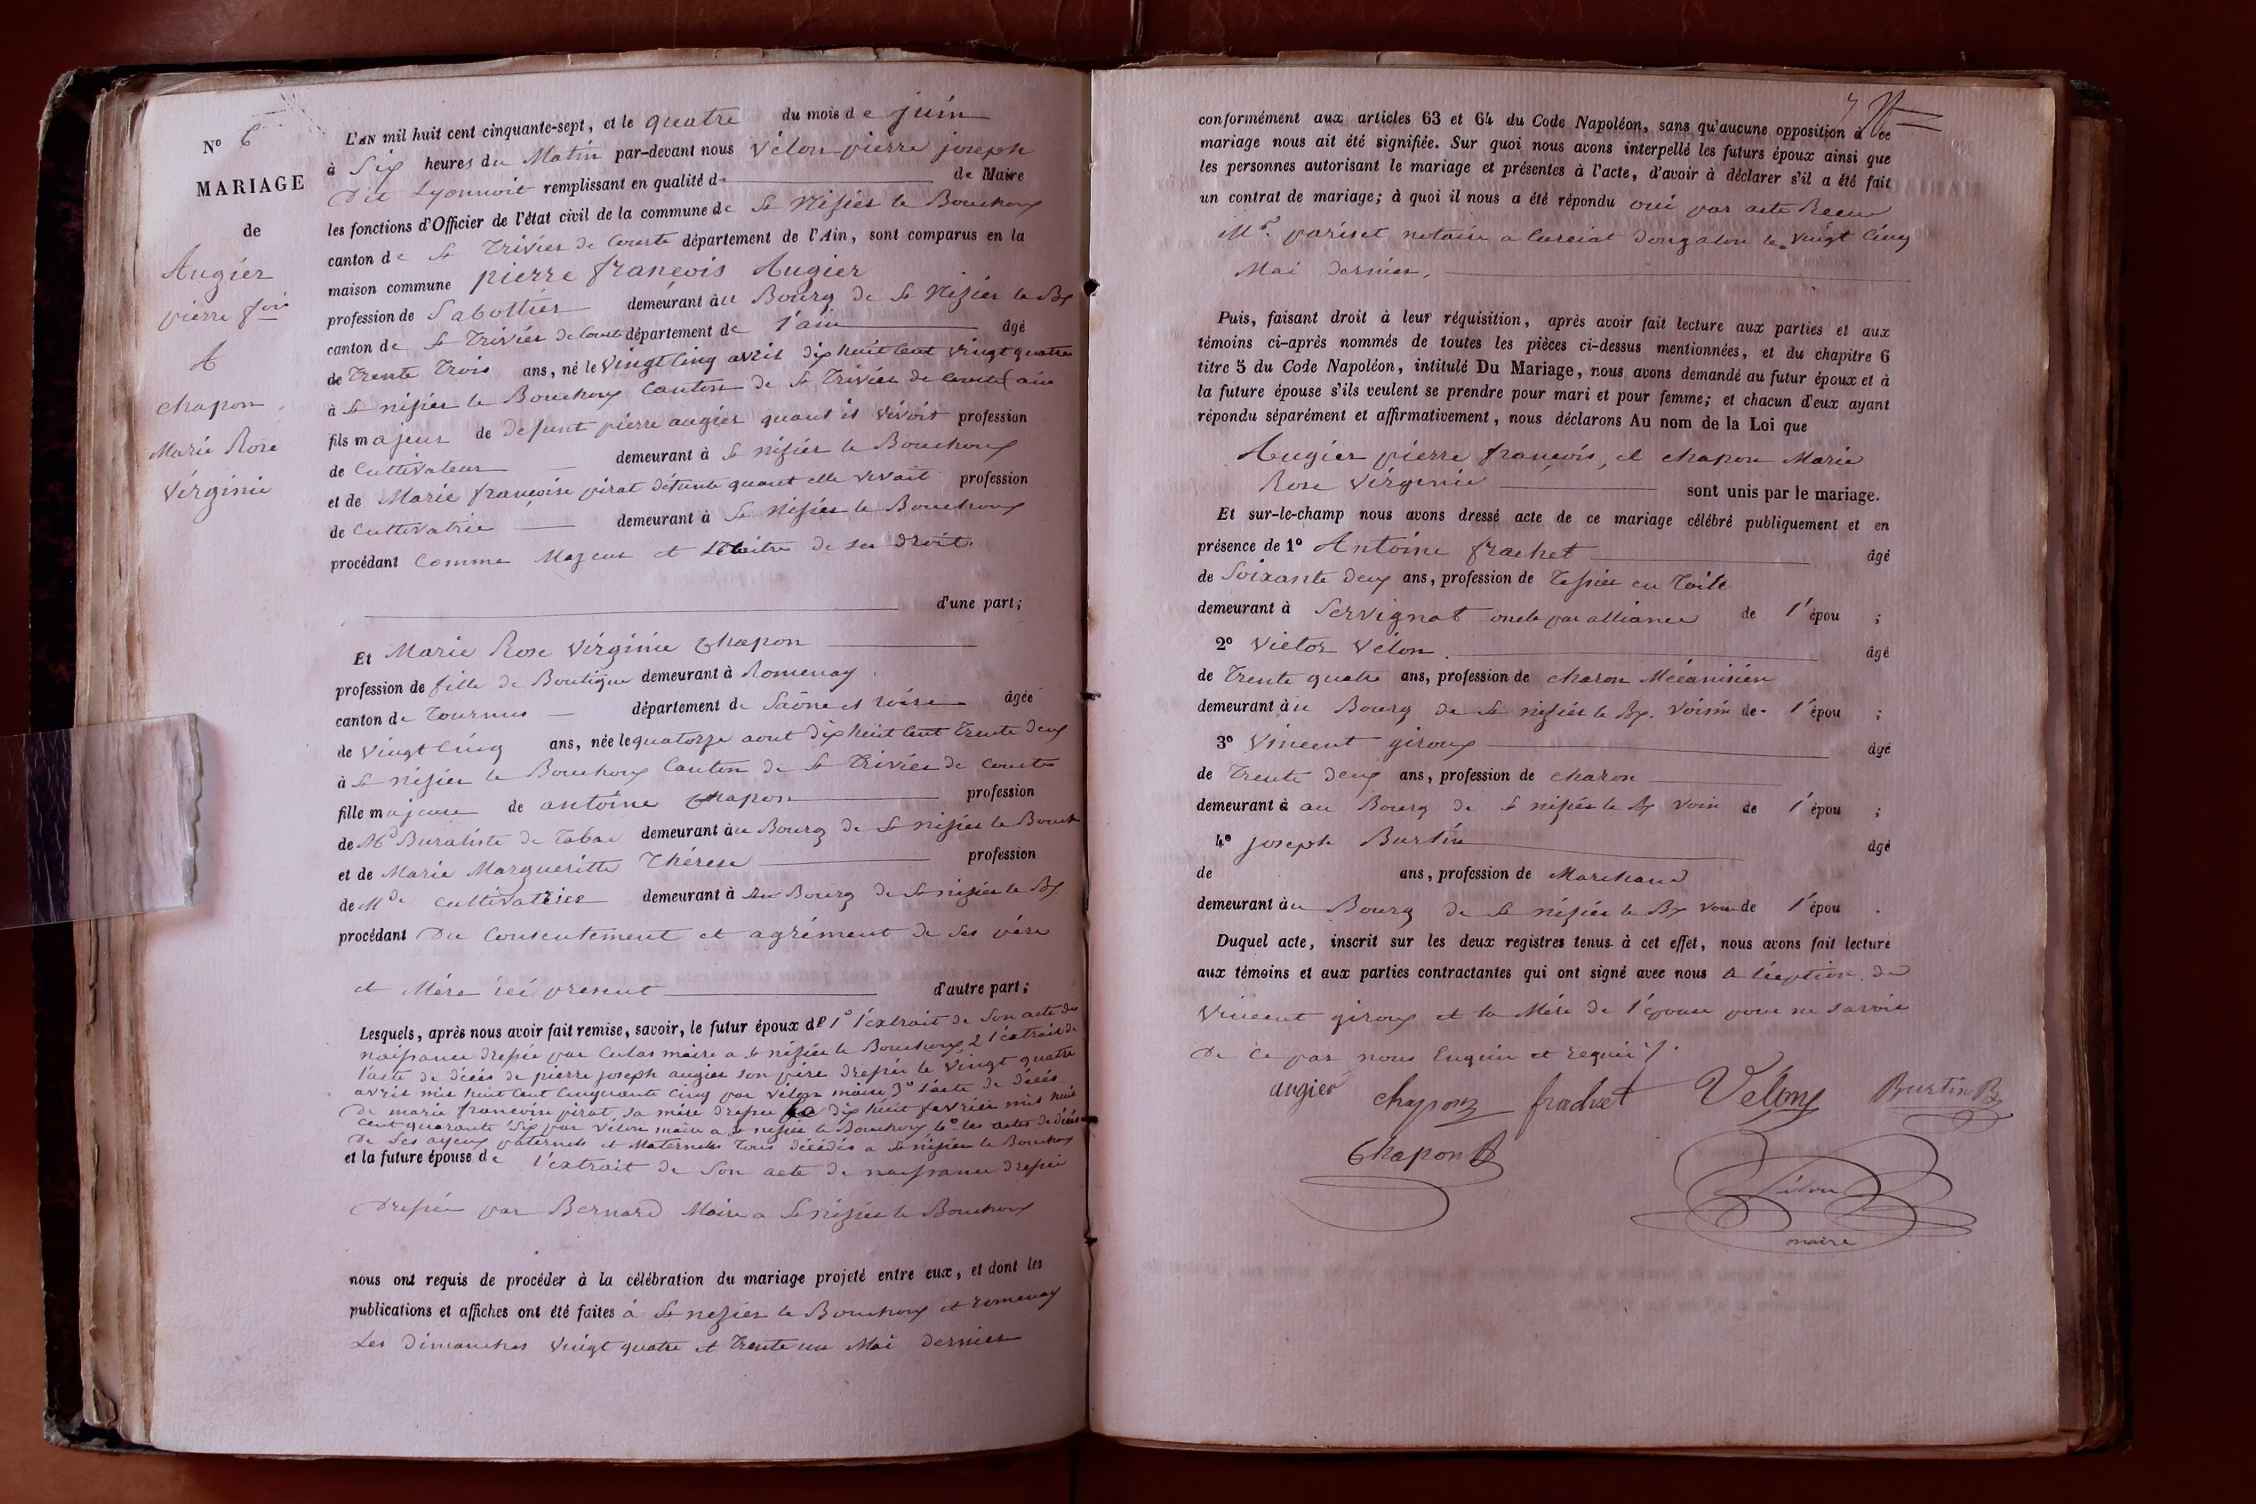 N° 6
MARIAGE
de
Augier
pierre fois
&
chapon
Marie Rose
Virginie
L'AN mil huit cent cinquante-sept, et le quatre du mois de juin
à Six heures du Matin par-devant nous Vélon pierre joseph
dit Lyonnoit remplissant en qualité de Maire
les fonctions d'Officier de l'état civil de la commune de St Nisier le Bouchoux
canton de St Trivier de Courte département de l'Ain, sont comparus en la
maison commune pierre françois Augier
profession de Sabottier demeurant àu Bourg de St Nizier le Bx
canton de St Trivier de Courte département de l'ain âgé
de Trente Trois ans, né le Vingt Cinq avril dix huit Cent Vingt quatre
à St nisier le Bouchoux Canton de St Trivier de Courte (ain
fils majeur de defunt pierre augier quant it vivoit profession
de Cultivateur demeurant à St nisier le Bouchoux
et de Marie françoise pirat défunte quant elle vevait profession
de Cultivatrice demeurant à St Nisier le Bouchoux
procédant Comme Majeur et Maitre de ses Droit.
d'une part;
Et Marie Rose Virginie Chapon
profession de fille de Boutique demeurant à Romenay
canton de Tournus département de Saône et Loire âgée
de Vingt Cinq ans, née le quatorze aout dix huit Cent Trente deux
à St nisier le Bouchoux Canton de St Trivier de Courte
fille majeure de antoine Chapon profession
de Md Buraliste de Tabac demeurant àu Bourg de St nisier le Bouch
et de Marie Margueritte Thérese profession
de Mde cultivatrice demeurant à au Bourg de St nisier le Bx
procédant Du Consentement et agrément de Ses père
et Mère ici present d'autre part;
Lesquels, après nous avoir fait remise, savoir, le futur époux de 1° l'extrait de Son acte de
naissance dressée par maire a St nisier le Bouchoux, 2 l'extrait de
l'acte de décés de pierre joseph augier son père dressée le Vingt quatre
avril mil huit Cent Cinquante Cinq par Vélon maire 3° l'acte de décés
De marie francoise pirat, sa mère dressée le dix huit fevrier mil huit
cent quarante Six par Vélon maire a St nisier le Bouchoux 4° les actes de décés
De Ses ayeux paternels et Maternels Tous décédés a St nisier le Bouchoux
et la future épouse de l'extrait de Son acte de naissance dressée
Dressée par Bernard Maire a St nisier le Bouchoux
nous ont requis de procéder à la célébration du mariage projeté entre eux, et dont les
publications et affiches ont été faites à St nizier le Bouchoux et romenay
Les dimanches Vingt quatre et Trente un Mai dernier
7
conformément aux articles 63 et 64 du Code Napoléon, sans qu'aucune opposition à ce
mariage nous ait été signifiée. Sur quoi nous avons interpellé les futurs époux ainsi que
les personnes autorisant le mariage et présentes à l'acte, d'avoir à déclarer s'il a été fait
un contrat de mariage; à quoi il nous a été répondu oui par acte Recu
Mr. pariset notaire a Curciat Dongalon le Vingt Cinq
Mai dernier.
Puis, faisant droit à leur réquisition, après avoir fait lecture aux parties et aux
témoins ci-après nommés de toutes les pièces ci-dessus mentionnées, et du chapitre 6
titre 5 du Code Napoléon, intitulé Du Mariage, nous avons demandé au futur époux et à
la future épouse s'ils veulent se prendre pour mari et pour femme; et chacun d'eux ayant
répondu séparément et affirmativement, nous déclarons Au nom de la Loi que
Augier pierre françois, et chapon Marie
Rose Virginie sont unis par le mariage.
Et sur-le-champ nous avons dressé acte de ce mariage célébré publiquement et en
présence de 1° Antoine frachet âgé
de Soixante deux ans, profession de Tessier en Toile
demeurant à Servignat oncle par alliance de l'épou ;
2° Victor Vélon. âgé
de Trente quatre ans, profession de charon Mécanisien
demeurant àu Bourg de St nisier le Bx. Voisin de l'épou ;
3° Vincent giroux âgé
de Trente deux ans, profession de charon
demeurant à au Bourg de St nisier le Bx Voisin de l'épou ;
4° joseph Burtin âgé
de ans, profession de Marchand
demeurant àu Bourg de St nisier le Bx Voisin de l'épou .
Duquel acte, inscrit sur les deux registres tenus à cet effet, nous avons fait lecture
aux témoins et aux parties contractantes qui ont signé avec nous A l'éxeption de
Vincent giroux et la Mère de l'épouse pour ne savoir
De Ce par nous Enquis et requis ./.
augier chapon frachet Velon Burtin
Chapon
Vélon
maire